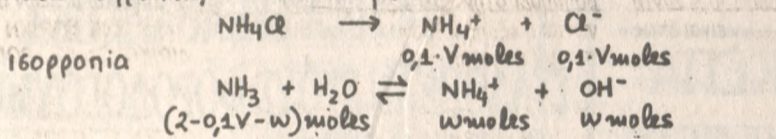 NH₄Cl → NH₄⁺ + Cl⁻
0,1·V moles 0,1·V moles
ισορροπία
NH₃ + H₂O ⇌ NH₄⁺ + OH⁻
(2-0,1V-w) moles w moles w moles